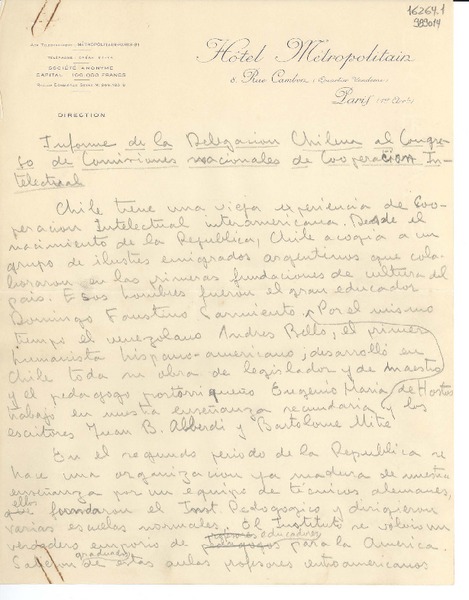 16264.1
989014
Hôtel Métropolitain
SOCIÉTÉ ANONYME
CAPITAL 100.000 FRANCS
8, Rue Cambon (Quartier Vendôme)
Paris (1er Arrt)
DIRECTION
Informe de la Delegacion Chilena al Congre-
so de Comisiones nacionales de Cooperación In-
telectual
Chile tiene una vieja experiencia de Coo-
peracion Intelectual interamericana. Desde el
nacimiento de la Republica, Chile acogia a un
grupo de ilustres emigrados argentinos que cola-
boraron en las primeras fundaciones de cultura del
pais. Esos hombres fueron el gran educador
Domingo Faustino Sarmiento. Por el mismo
tiempo el venezolano Andres Bello, el primer
humanista hispano-americano, desarrolló en
Chile toda su obra de legislador y de maestro
y el pedagogo portorriqueño Eugenio Maria de Hostos
trabajo en nuestra enseñanza secundaria y los
escritores Juan B. Alberdi y Bartolome Mitre
En el segundo periodo de la Republica se
hace una organizacion ya madura de nuestra
enseñanza por un equipo de técnicos alemanes,
ellos fundaron el Inst Pedagogico y dirigieron
varias escuelas normales. El Instituto se volvió un
verdadero emporio de profesores educadores para la America.
Salieron graduados de estas aulas profesores centroamericanos